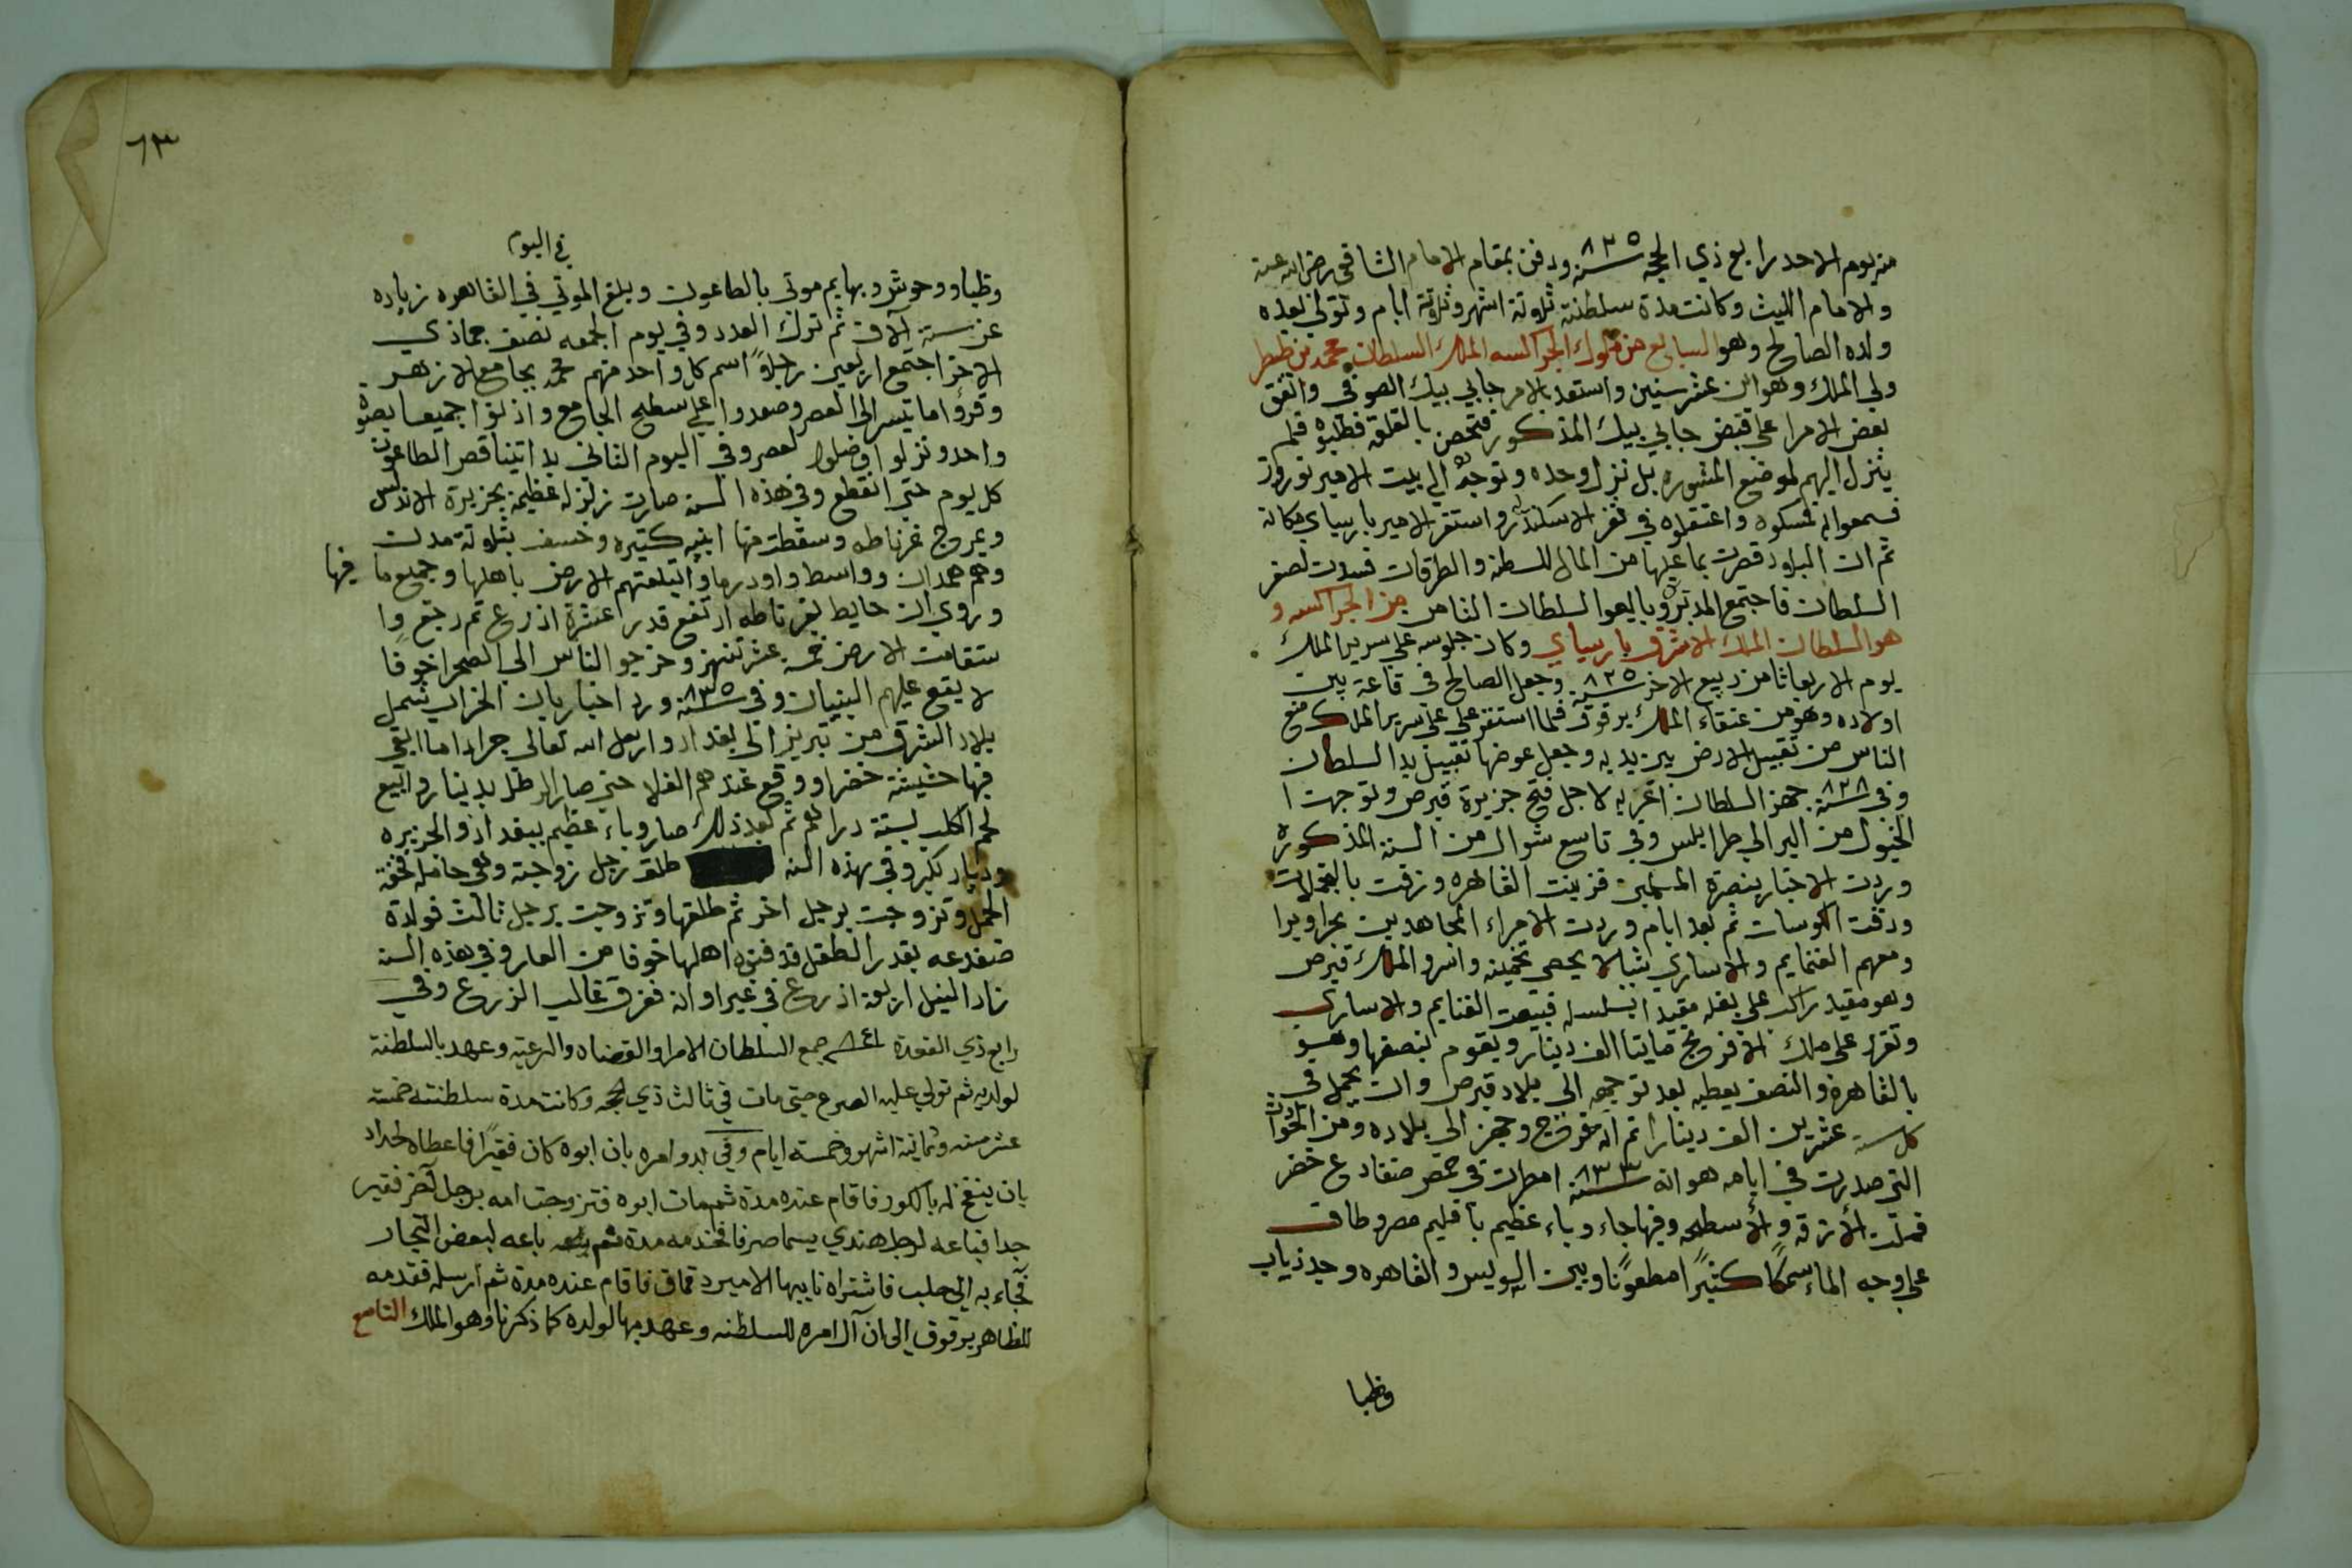 منه يوم الاحد رابع ذي الحجه سنة ٨٢٥ ودفن بمقام الامام الشافعي رضي الله عنه
والامام الليث وكانت مدة سلطنته ثلاثة اشهر وثلاثة ايام وتولي بعده
ولده الصالح وهو السابع من ملوك الجراكسه الملك السلطان محمد بن ططر
ولي الملك وهو ابن عشر سنين واستعد الامر جاني بيك الصوفي واتفق
بعض الامرا على قبض جاني بيك المذكور فتحصن بالقلعة فطلبوه فلم
ينزل اليهم لموضع المشوره بل نزل وحده وتوجه الي بيت الامير نوروز
فسمعوا به فمسكوه واعتقلوه في ثغر الاسكندرية واستقر الامير بارسباي مكانه
ثم ان البلاد قصرت بما عليها من المال للسلطنه والطرقات فسدت لصغر
السلطان فاجتمع المدبروه وبايعوا السلطان الثامن من الجراكسه و
هو السلطان الملك الاشرف بارسباي وكان جلوسه على سرير الملك
يوم الاربعا ثامن ربيع الاخر سنة ٨٢٥ وجعل الصالح في قاعة بين
اولاده وهو من عتقاء الملك برقوق فلما استقر علي على سرير الملك منع
الناس من تقبيل الارض بين يديه وجعل عوضها تقبيل يد السلطان
وفي سنة ٨٢٨ جهز السلطان اغربه لاجل فتح جزيرة قبرص وتوجهت ا
لخيول من البر الي طرابلس وفي تاسع شوال من السنة المذكورة
وردت الاخبار بنصرة المسلمين فزينت القاهره وزفت بالمغلات
ودقت الكوسات ثم بعد ايام وردت الامراء المجاهدين بحرا وبرا
ومعهم الغنايم والاساري شيا لا يحصى تخمينه واسر والملك قبرص
وهو مقيد راكب على بغله مقيدا بسلسله فبيعت الغنايم والاسارى
وتقرر على ملك الافرنج مايتا الف دينار ويقوم بنصفها وهو
بالقاهرة والنصف يعطيه بعد توجهه الى بلاد قبرص وان يحمل في
كل سنة عشرين الف دينارا ثم انه فرج وجهز الى بلاده ومن الحوادث
التي صدرت في ايامه هو انه سنة ٨٣٣ امطرت في حمص ضفادع خضر
فملئت الأزقه والأسطحه وفيها جاء وباء عظيم بأقليم مصر وطاف
على وجه الماء سمكًا كثيرًا مطعونًا وبين السويس والقاهره وجد ذياب
وظبا
٦٣
في اليوم
وظبا ووحوش وبهايم موتى بالطاعون وبلغ الموتي في القاهره زياده
عن ستة الاف ثم ترك العدد وفي يوم الجمعه نصف جماذي
الاخر اجتمع اربعين رجلاً اسم كل واحد منهم محمد بجامع الازهر
وقرؤا ما تيسر الى العصر وصعدوا على سطح الجامع واذنوا جميعا بصوت
واحد ونزلوا وصلوا العصر وفي اليوم الثاني بدا يتناقص الطاعون
كل يوم حتى انقطع وفي هذه السنه صارت زلزله عظيمة بجزيرة الاندلس
وبمروج غرناطه وسقطت منها ابنيه كثيره وخسف بثلاثة مدن
وهم همدان وواسط واودرما وابتلعتهم الارض باهلها وجميع ما فيها
وروي ان حايط بغرناطه ارتفع قدر عشرة اذرع ثم رجع وا
ستقامت الارض خمسه عشر تنهز وخرجو الناس الى الصحرا خوفا
لا يقع عليهم البنيان وفي سنة ٨٣٥ ورد اخبار بان الخراب شمل
بلاد الشرق من تبريز الى بغداد وارسل الله تعالى جرادا ما ابقى
فيها حشيشة خضرا ووقع عندهم الغلا حتى صار الرطل بدينار وابيع
لحم الكلب بستة دراهم ثم بعد ذلك صار وباء عظيم ببغداد والجزيره
وديار بكر وفي هذه السنه طلق رجل زوجته وهي حامله فخفة
الحمل وتزوجت برجل اخر ثم طلقها وتزوجت برجل ثالث فولدة
ضفدعه بقدر الطفل فدفنوه اهلها خوفا من العار وفي هذه السنة
زاد النيل اربعة اذرع في غير اوانه فغرق غالب الزروع وفي
رابع ذي القعدة ٨٤١ جمع السلطان الامرا والقضاه والرعيه وعهد بالسلطنة
لولديه ثم تولي عليه الصرع حتى مات في ثالث ذي الحجه وكانت مدة سلطنته خمسة
عشر سنه وثمانية اشهر وخمسة ايام وفي بدو امره بان ابوه كان فقيرًا فاعطاه لحداد
بان ينفخ له بالكور فاقام عنده مدة ثم مات ابوه فتزوجت امه برجل آخر فقير
جدا فباعه لرجل هندي يسما صرفا فخدمه مدة ثم باعه لبعض التجار
فجاء به الى حلب فاشتراه نايبها الامير دقماق فاقام عنده مدة ثم ارسله فقدمه
للظاهر برقوق الى ان آل امره للسلطنه وعهد بها لولده كما ذكرنا وهو الملك التاسع